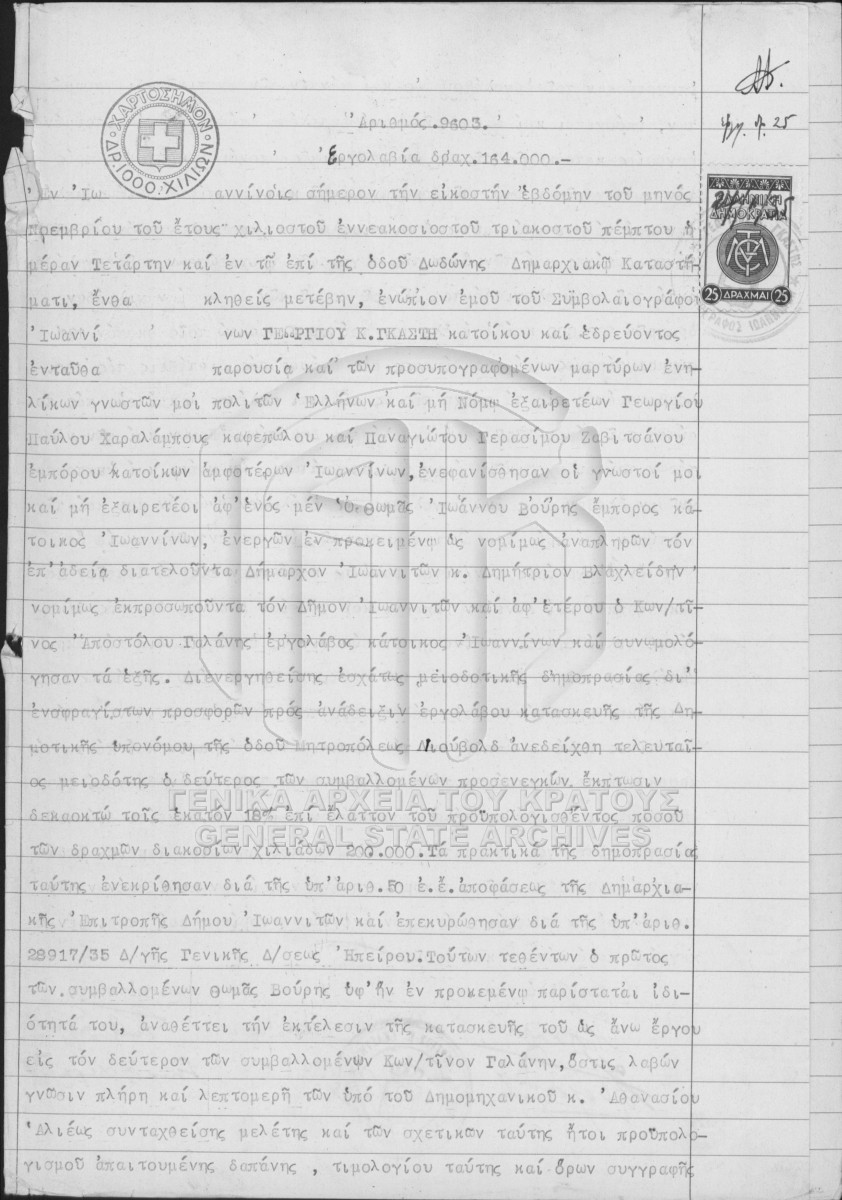 ΧΑΡΤΟΣΗΜΟΝ
ΔΡ. 1000. ΧΙΛΙΩΝ
Ἀριθμός.9603.
Ἐργολαβία δραχ.164.000.-
25
ΕΛΛΗΝΙΚΗ
ΔΗΜΟΚΡΑΤΙΑ
25 ΔΡΑΧΜΑΙ 25
Ἐν Ἰω αννίνοις σήμερον τήν εἰκοστήν ἑβδόμην τοῦ μηνός
Νοεμβρίου τοῦ ἔτους χιλιοστοῦ ἐννεακοσιοστοῦ τριακοστοῦ πέμπτου ἡ
μέραν Τετάρτην καί ἐν τῷ ἐπί τῆς ὁδοῦ Δωδώνης Δημαρχιακῷ Καταστή-
ματι, ἔνθα κληθείς μετέβην, ἐνώπιον ἐμοῦ τοῦ Συμβολαιογράφου
Ἰωαννί νων ΓΕΩΡΓΙΟΥ Κ.ΓΚΑΣΤΗ κατοίκου καί ἑδρεύοντος
ἐνταῦθα παρουσίᾳ καί τῶν προσυπογραφομένων μαρτύρων ἐνη-
λίκων γνωστῶν μοι πολιτῶν Ἑλλήνων καί μή Νόμῳ ἐξαιρετέων Γεωργίου
Παύλου Χαραλάμπους καφεπώλου καί Παναγιώτου Γερασίμου Ζαβιτσάνου
ἐμπόρου κατοίκων ἀμφοτέρων Ἰωαννίνων,ἐνεφανίσθησαν οἱ γνωστοί μοι
καί μή ἐξαιρετέοι ἀφ'ἑνός μέν ὁ θωμᾶς Ἰωάννου Βούρης ἔμπορος κά-
τοικος Ἰωαννίνων, ἐνεργῶν ἐν προκειμένῳ ὡς νομίμως ἀναπληρῶν τόν
ἐπ'ἀδείᾳ διατελοῦντα Δήμαρχον Ἰωαννιτῶν κ. Δημήτριον Βλαχλείδην
νομίμως ἐκπροσωποῦντα τόν Δῆμον Ἰωαννιτῶν καί ἀφ'ἑτέρου ὁ Κων/τῖ-
νος Ἀποστόλου Γαλάνης ἐργολάβος κάτοικος Ἰωαννίνων καί συνωμολό-
γησαν τά ἑξῆς. Διενεργηθείσης ἐσχάτως μειοδοτικῆς δημοπρασίας δι'
ἐνσφραγίστων προσφορῶν πρός ἀνάδειξιν ἐργολάβου κατασκευῆς τῆς Δη-
μοτικῆς ὑπονόμου τῆς ὁδοῦ Μητροπόλεως Λιούβολδ ἀνεδείχθη τελευταῖ-
ος μειοδότης ὁ δεύτερος τῶν συμβαλλομένων προσενεγκών ἔκπτωσιν
δεκαοκτώ τοῖς ἑκατόν 18% ἐπί ἔλαττον τοῦ προϋπολογισθέντος ποσοῦ
τῶν δραχμῶν διακοσίων χιλιάδων 200.000.Τά πρακτικά τῆς δημοπρασίας
ταύτης ἐνεκρίθησαν διά τῆς ὑπ'ἀριθ.50 ἐ.ἔ.ἀποφάσεως τῆς Δημαρχια-
κῆς Ἐπιτροπῆς Δήμου Ἰωαννιτῶν καί ἐπεκυρώθησαν διά τῆς ὑπ'ἀριθ.
28917/35 Δ/γῆς Γενικῆς Δ/σεως Ἠπείρου.Τούτων τεθέντων ὁ πρῶτος
τῶν συμβαλλομένων θωμᾶς Βούρης ὑφ'ἥν ἐν προκεμένῳ παρίσταται ἰδι-
ότητά του, ἀναθέττει τήν ἐκτέλεσιν τῆς κατασκευῆς τοῦ ὡς ἄνω ἔργου
εἰς τόν δεύτερον τῶν συμβαλλομένων Κων/τῖνον Γαλάνην,ὅστις λαβών
γνῶσιν πλήρη καί λεπτομερῆ τῶν ὑπό τοῦ Δημομηχανικοῦ κ. Ἀθανασίου
Ἁλιέως συνταχθείσης μελέτης καί τῶν σχετικῶν ταύτης ἤτοι προϋπολο-
γισμοῦ ἀπαιτουμένης δαπάνης , τιμολογίου ταύτης καί ὅρων συγγραφῆς
ΓΕΝΙΚΑ ΑΡΧΕΙΑ ΤΟΥ ΚΡΑΤΟΥΣ
GENERAL STATE ARCHIVES